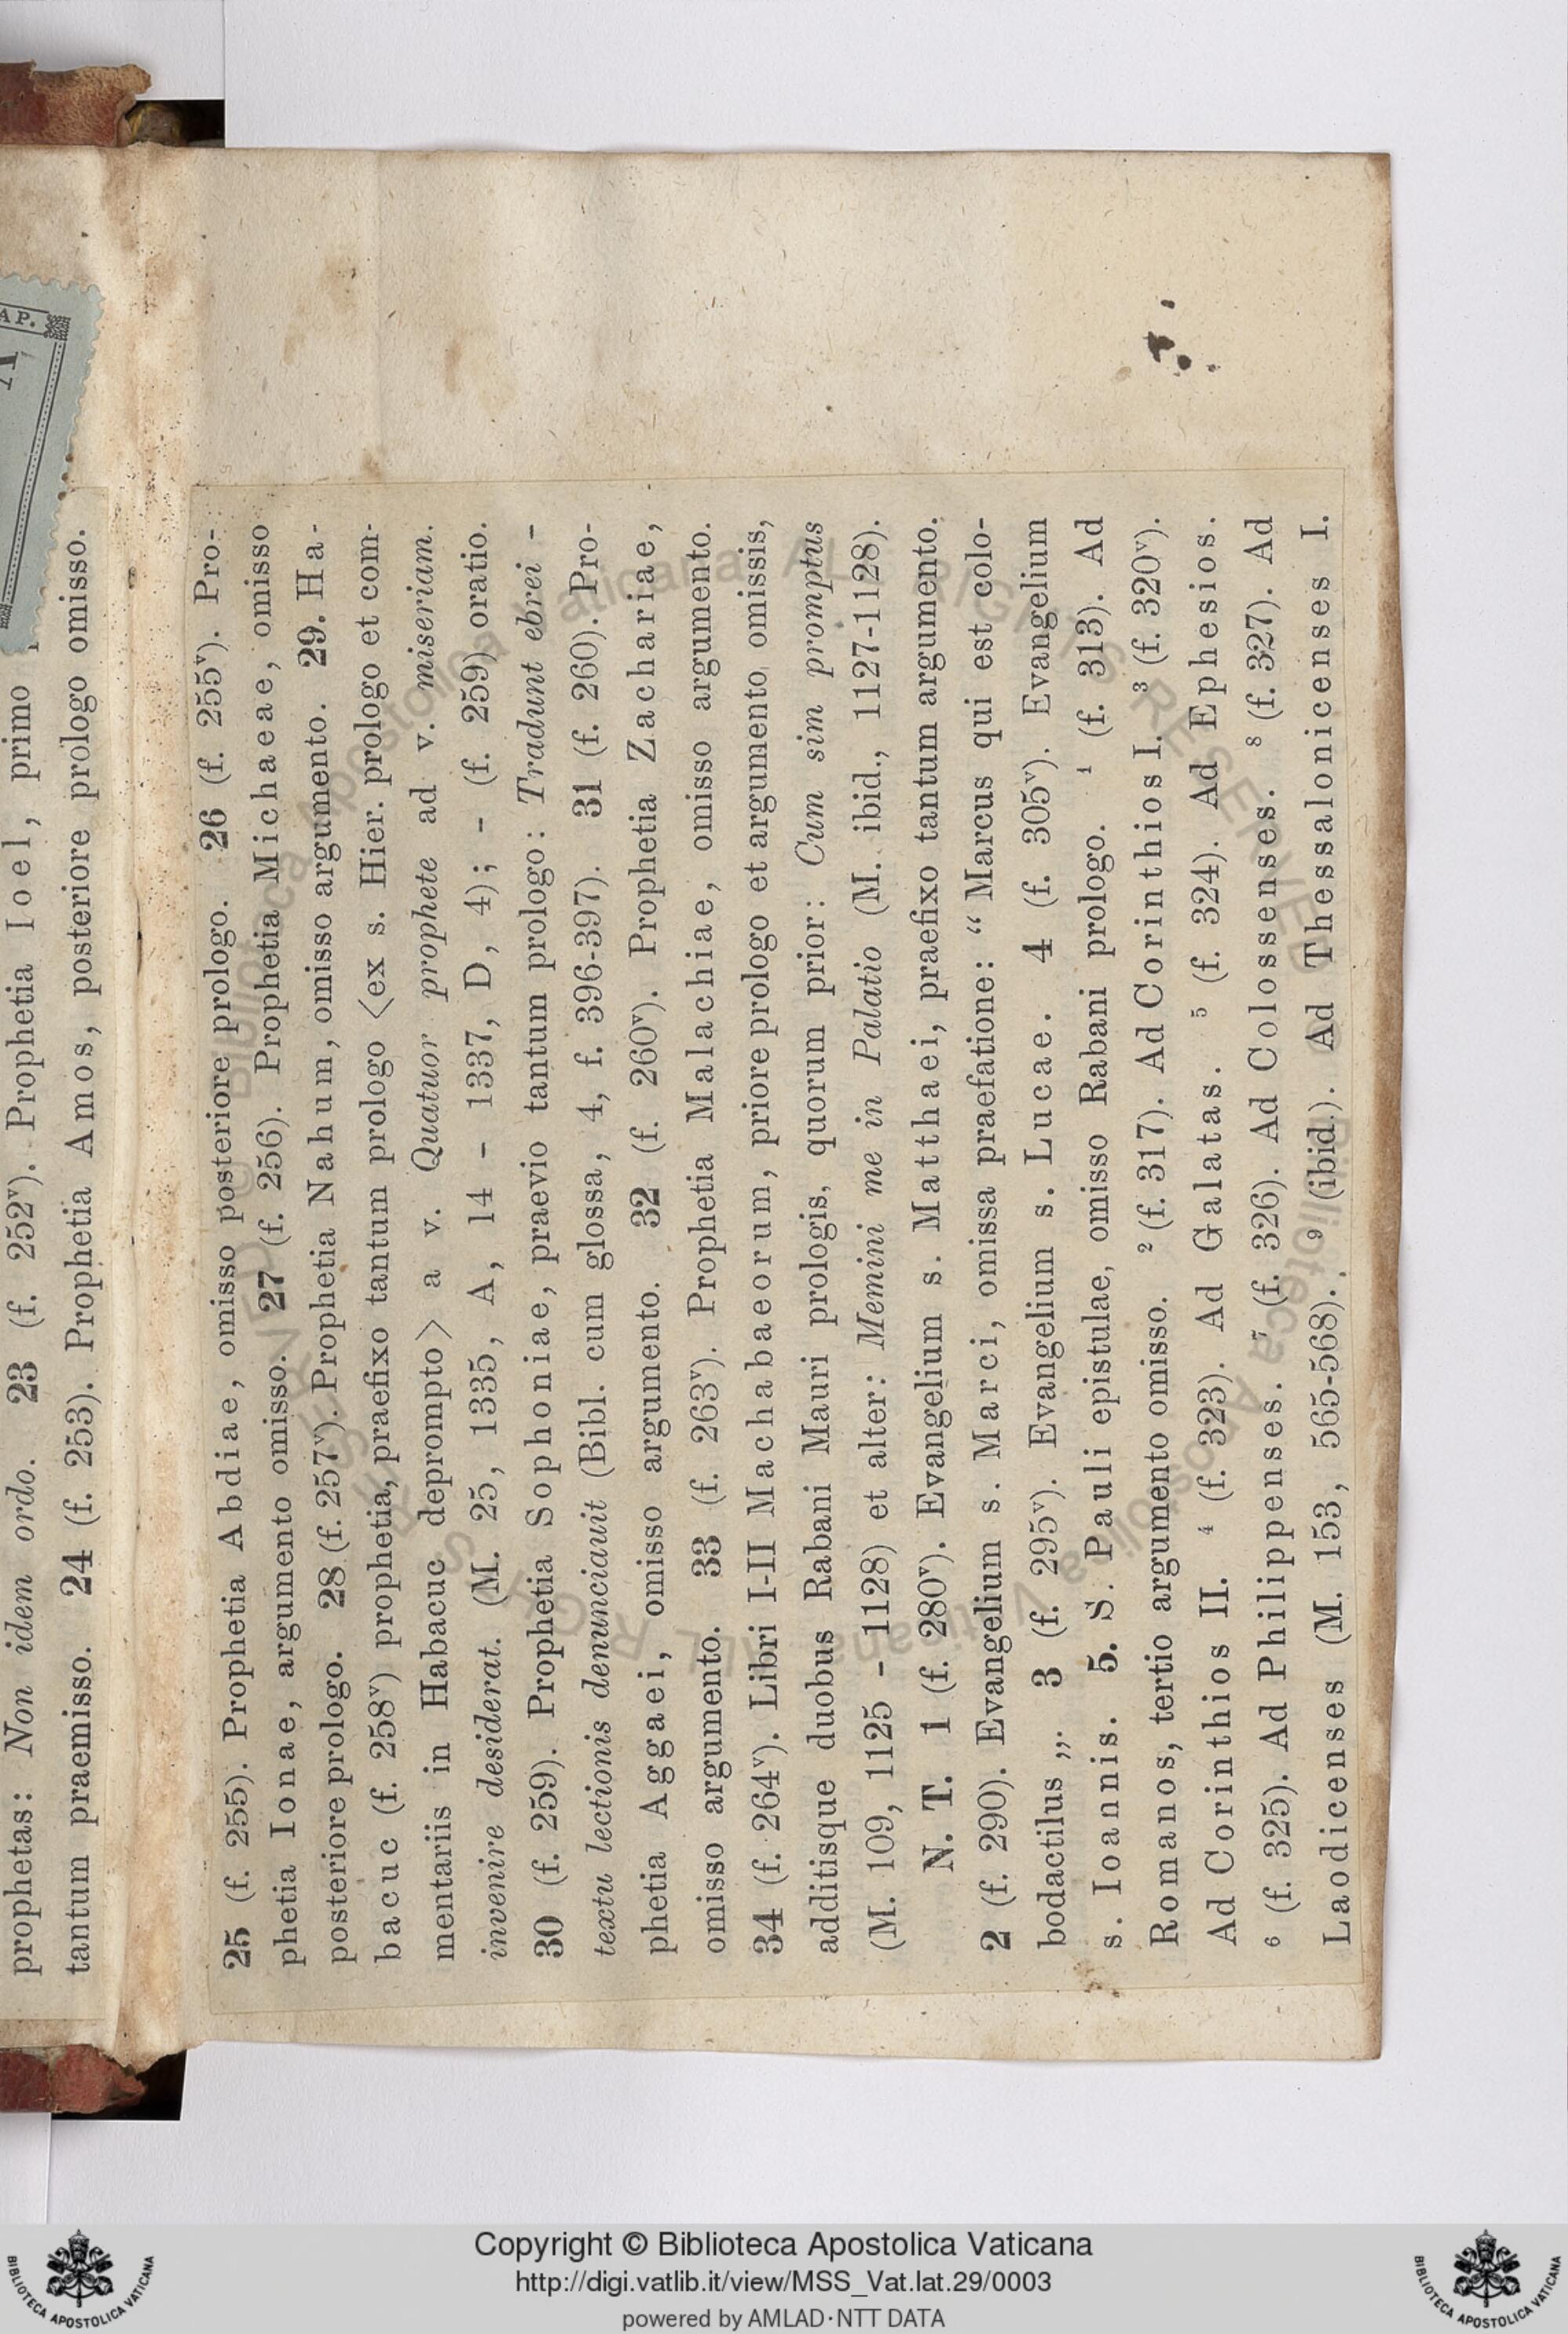 prophetas: Non idem ordo. 23 (f. 252ᵛ). Prophetia Ioel, primo
tantum praemisso. 24 (f. 253). Prophetia Amos, posteriore prologo omisso.
25 (f. 255). Prophetia Abdiae, omisso posteriore prologo. 26 (f. 255ᵛ). Pro-
phetia Ionae, argumento omisso. 27 (f. 256). Prophetia Michaeae, omisso
posteriore prologo. 28 (f. 257ᵛ). Prophetia Nahum, omisso argumento. 29. Ha-
bacuc (f. 258ᵛ) prophetia, praefixo tantum prologo <ex s. Hier. prologo et com-
mentariis in Habacuc deprompto> a v. Quatuor prophete ad v. miseriam.
invenire desiderat. (M. 25, 1335, A, 14 - 1337, D, 4); - (f. 259) oratio.
30 (f. 259). Prophetia Sophoniae, praevio tantum prologo: Tradunt ebrei -
textu lectionis denunciauit (Bibl. cum glossa, 4, f. 396-397). 31 (f. 260). Pro-
phetia Aggaei, omisso argumento. 32 (f. 260ᵛ). Prophetia Zachariae,
omisso argumento. 33 (f. 263ᵛ). Prophetia Malachiae, omisso argumento.
34 (f. 264ᵛ). Libri I-II Machabaeorum, priore prologo et argumento omissis,
additisque duobus Rabani Mauri prologis, quorum prior: Cum sim promptus
(M. 109, 1125 - 1128) et alter: Memini me in Palatio (M. ibid., 1127-1128).
N. T. 1 (f. 280ᵛ). Evangelium s. Matthaei, praefixo tantum argumento.
2 (f. 290). Evangelium s. Marci, omissa praefatione: “ Marcus qui est colo-
bodactilus „. 3 (f. 295ᵛ). Evangelium s. Lucae. 4 (f. 305ᵛ). Evangelium
s. Ioannis. 5. S. Pauli epistulae, omisso Rabani prologo. ¹ (f. 313). Ad
Romanos, tertio argumento omisso. ² (f. 317). Ad Corinthios I. ³ (f. 320ᵛ).
Ad Corinthios II. ⁴ (f. 323). Ad Galatas. ⁵ (f. 324). Ad Ephesios.
⁶ (f. 325). Ad Philippenses. ⁷ (f. 326). Ad Colossenses. ⁸ (f. 327). Ad
Laodicenses (M. 153, 565-568). ⁹ (ibid.). Ad Thessalonicenses I.
Copyright © Biblioteca Apostolica Vaticana
http://digi.vatlib.it/view/MSS_Vat.lat.29/0003
powered by AMLAD·NTT DATA
BIBLIOTECA APOSTOLICA VATICANA
BIBLIOTECA APOSTOLICA VATICANA